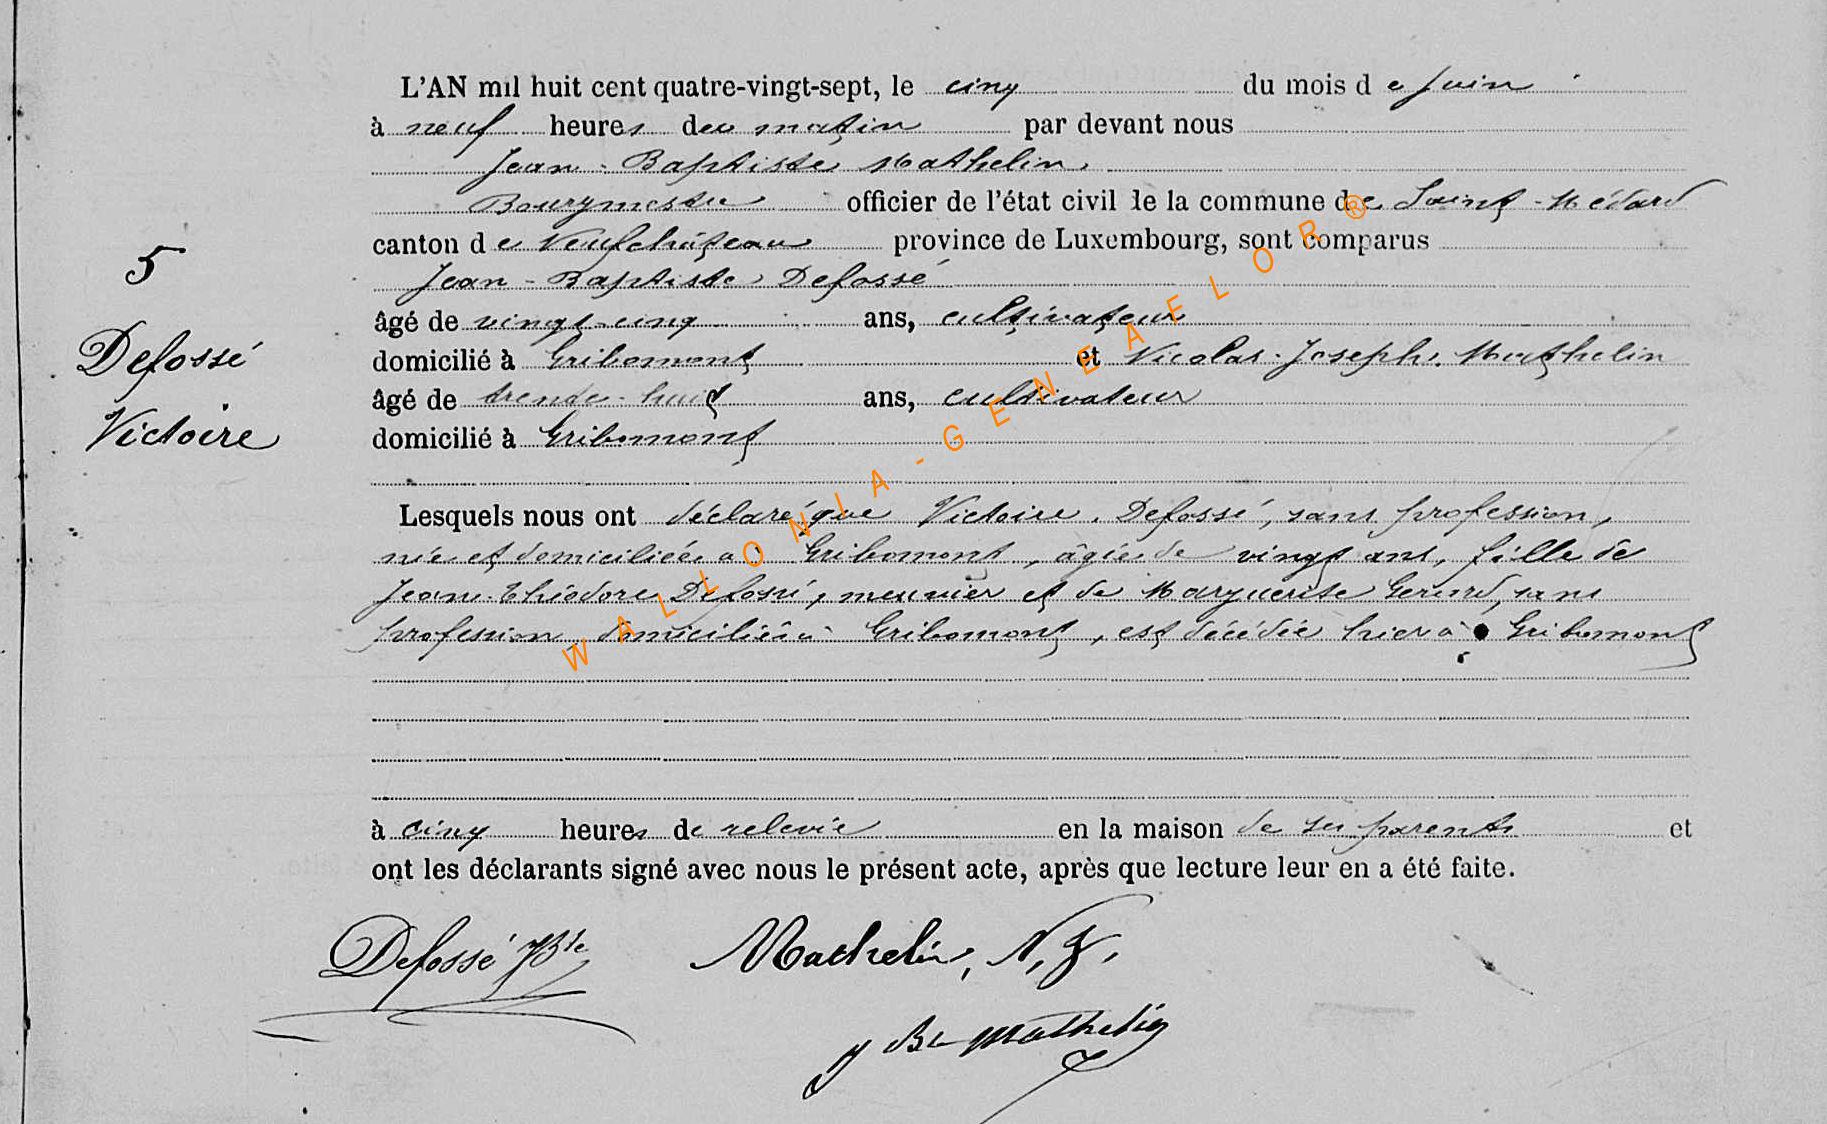 L'AN mil huit cent quatre-vingt-sept, le cinq du mois de Juin
à neuf heures du matin par devant nous
Jean-Baptiste Mathelin,
Bourgmestre officier de l'état civil de la commune de Saint-Médard
canton de Neufchâteau province de Luxembourg, sont comparus
Jean-Baptiste Defossé
5
âgé de vingt-cinq ans, cultivateur
domicilié à Gribomont et Nicolas-Joseph Mathelin
Defossé
âgé de trente-huit ans, cultivateur
Victoire
domicilié à Gribomont
Lesquels nous ont déclaré que Victoire Defossé, sans profession,
née et domiciliée à Gribomont, âgée de vingt ans, fille de
Jean-Théodore Defossé, meunier et de Marguerite Gerard, sans
profession, domiciliés à Gribomont, est décédée hier à Gribomont
à cinq heures de relevée en la maison de ses parents et
ont les déclarants signé avec nous le présent acte, après que lecture leur en a été faite.
Defossé JBte Mathelin, N, J,
J Bte Mathelin
WALLONIA-GENEAELOR®